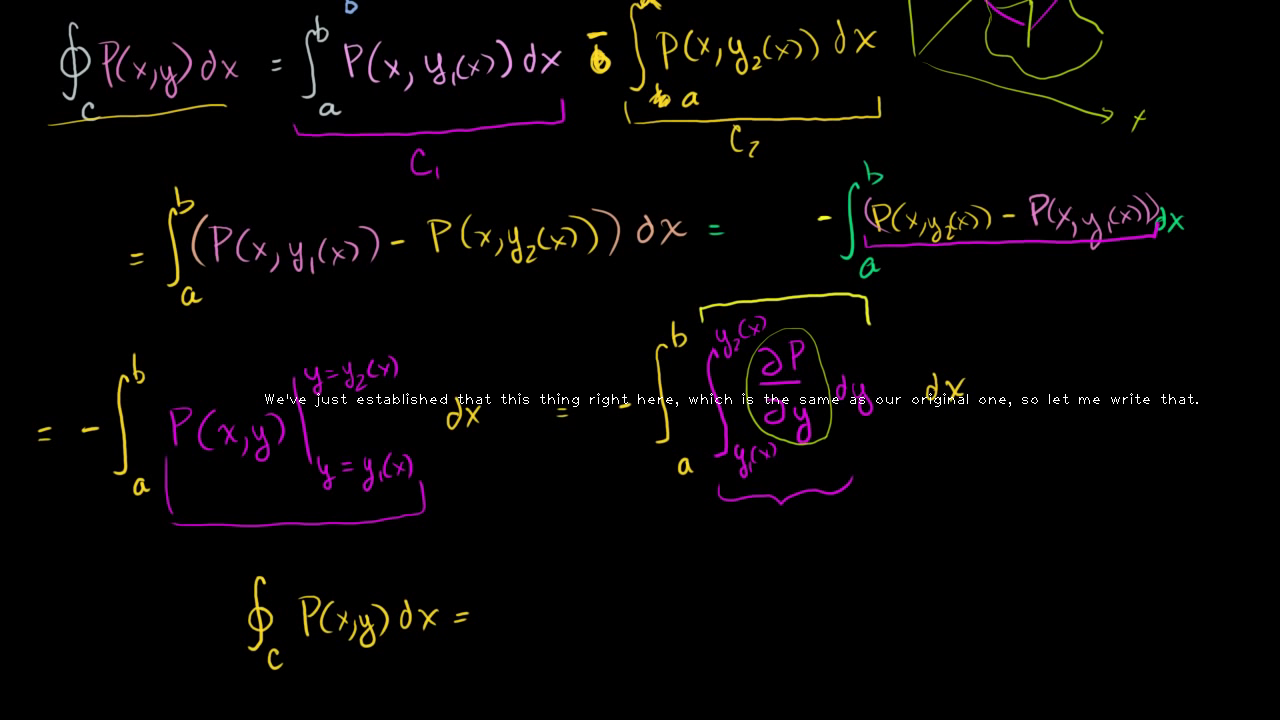 ∮_C P(x,y) dx = ∫_a^b P(x, y₁(x)) dx - ∫_a P(x,y₂(x)) dx
C₁ C₂ x
= ∫_a^b (P(x, y₁(x)) - P(x,y₂(x))) dx = -∫_a^b (P(x,y₂(x)) - P(x,y₁(x))) dx
= -∫_a^b P(x,y) |_{y=y₁(x)}^{y=y₂(x)} dx = -∫_a^b ∫_{y₁(x)}^{y₂(x)} ∂P/∂y dy dx
We've just established that this thing right here, which is the same as our original one, so let me write that.
∮_C P(x,y) dx =